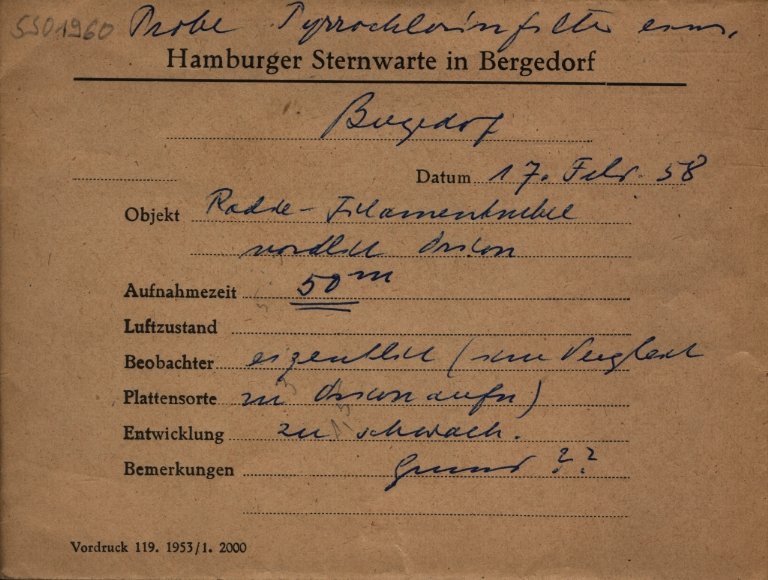 SSO1960 Probe Pyrrochlorinfilter
Hamburger Sternwarte in Bergedorf
Bergedorf
Datum 17. Febr. 58
Objekt Rodde-Filamentnebel
nördlich Orion
Aufnahmezeit 50 m
Luftzustand
Beobachter eigentlich (im Vergleich
Plattensorte zu Orionaufn)
Entwicklung zu schwach.
Bemerkungen Grund ??
Vordruck 119. 1953/1. 2000